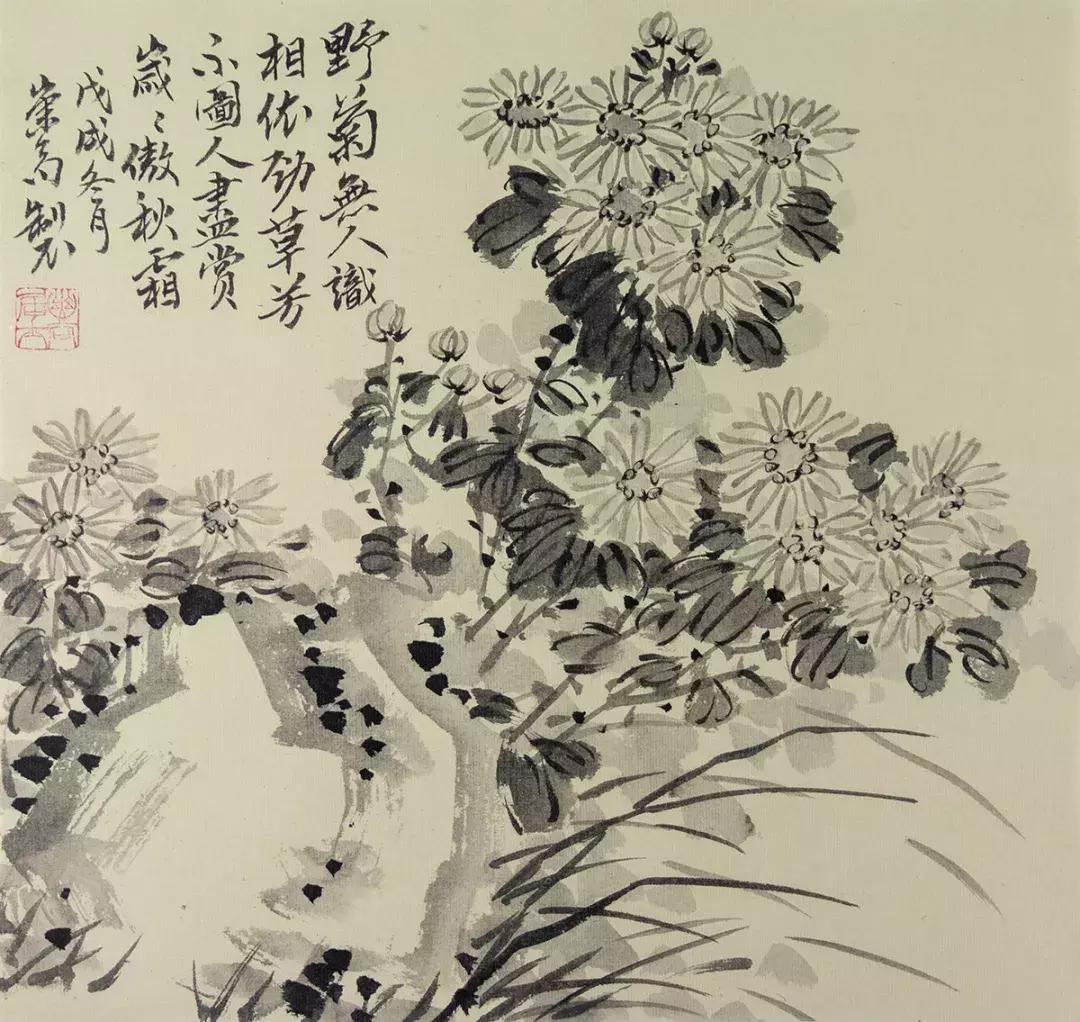 野菊無人識
相依勁草芳
不圖人盡賞
歲〻傲秋霜
戊戌冬月
製